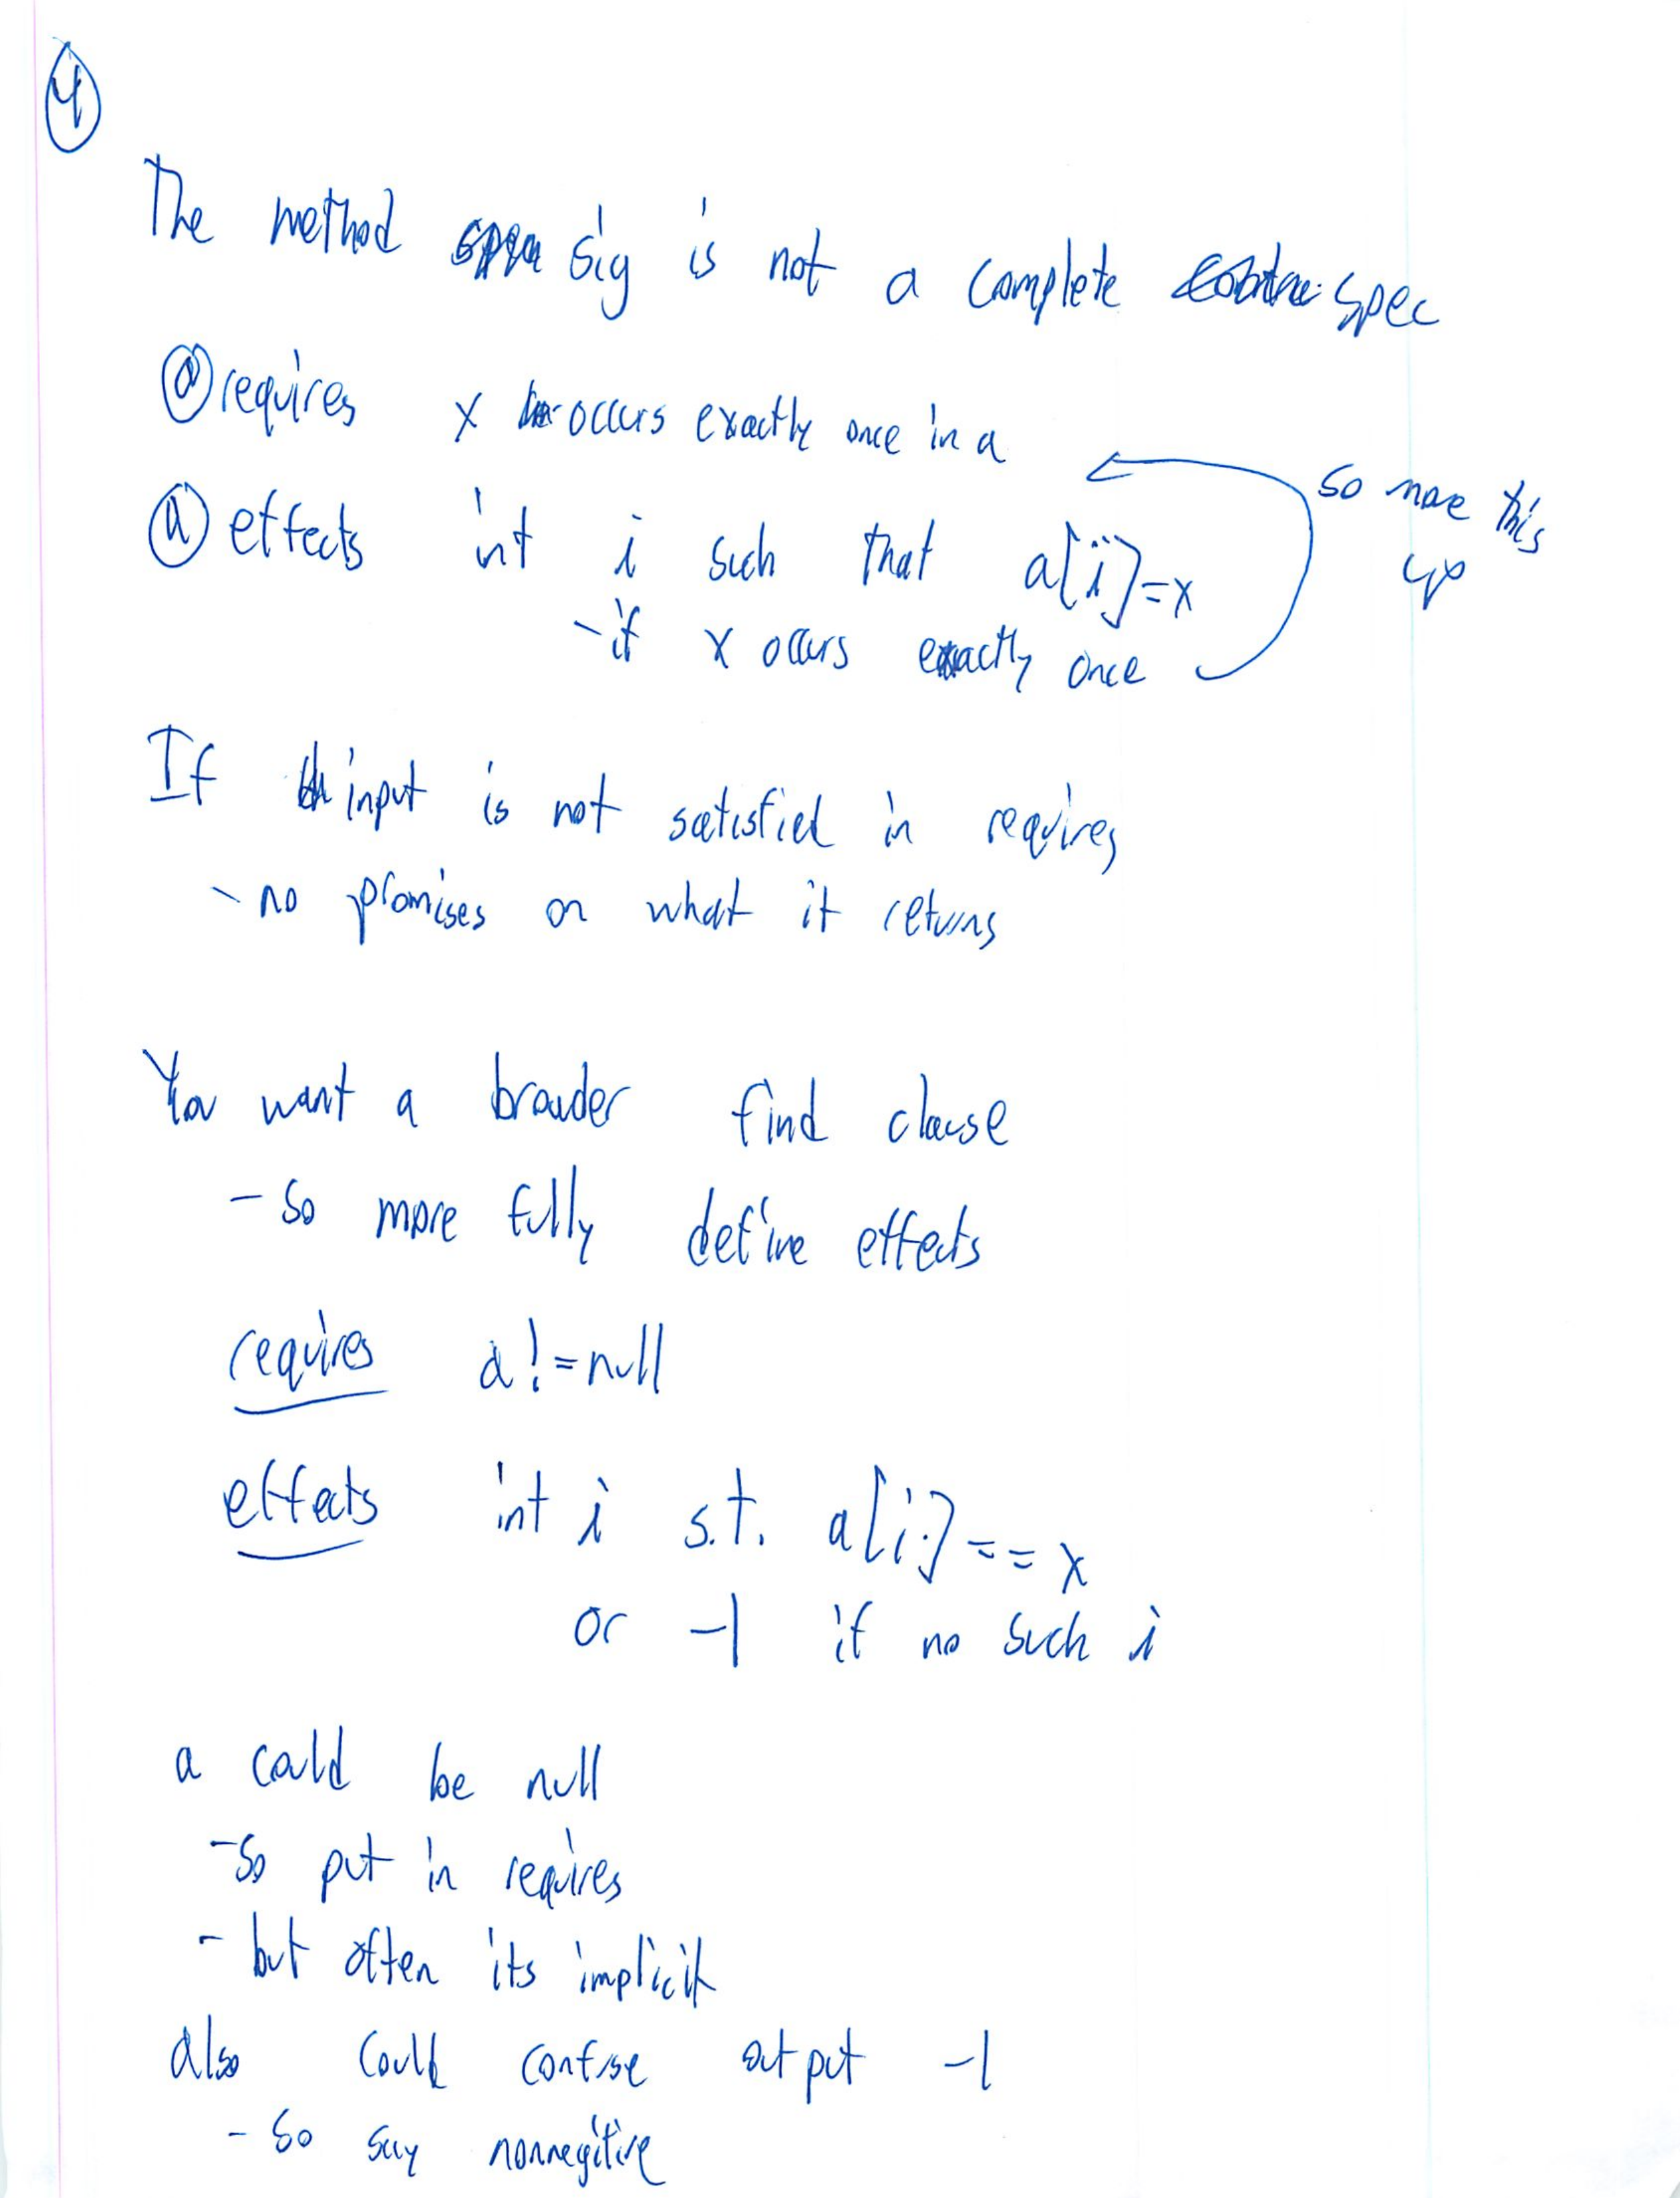 4
The method sig is not a complete spec
@requires x occurs exactly once in a
@effects int i such that a[i]=x
- if x occurs exactly once
so move this up
If input is not satisfied in requires
- no promises on what it returns
You want a broader find clause
- So more fully define effects
requires a!=null
effects int i s.t. a[i]==x
or -1 if no such i
a could be null
- So put in requires
- but often its implicit
also could confuse output -1
- So say nonnegitive